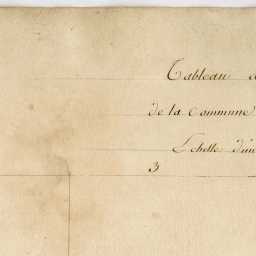 Tableau
de la commune
Echelle d'un
3